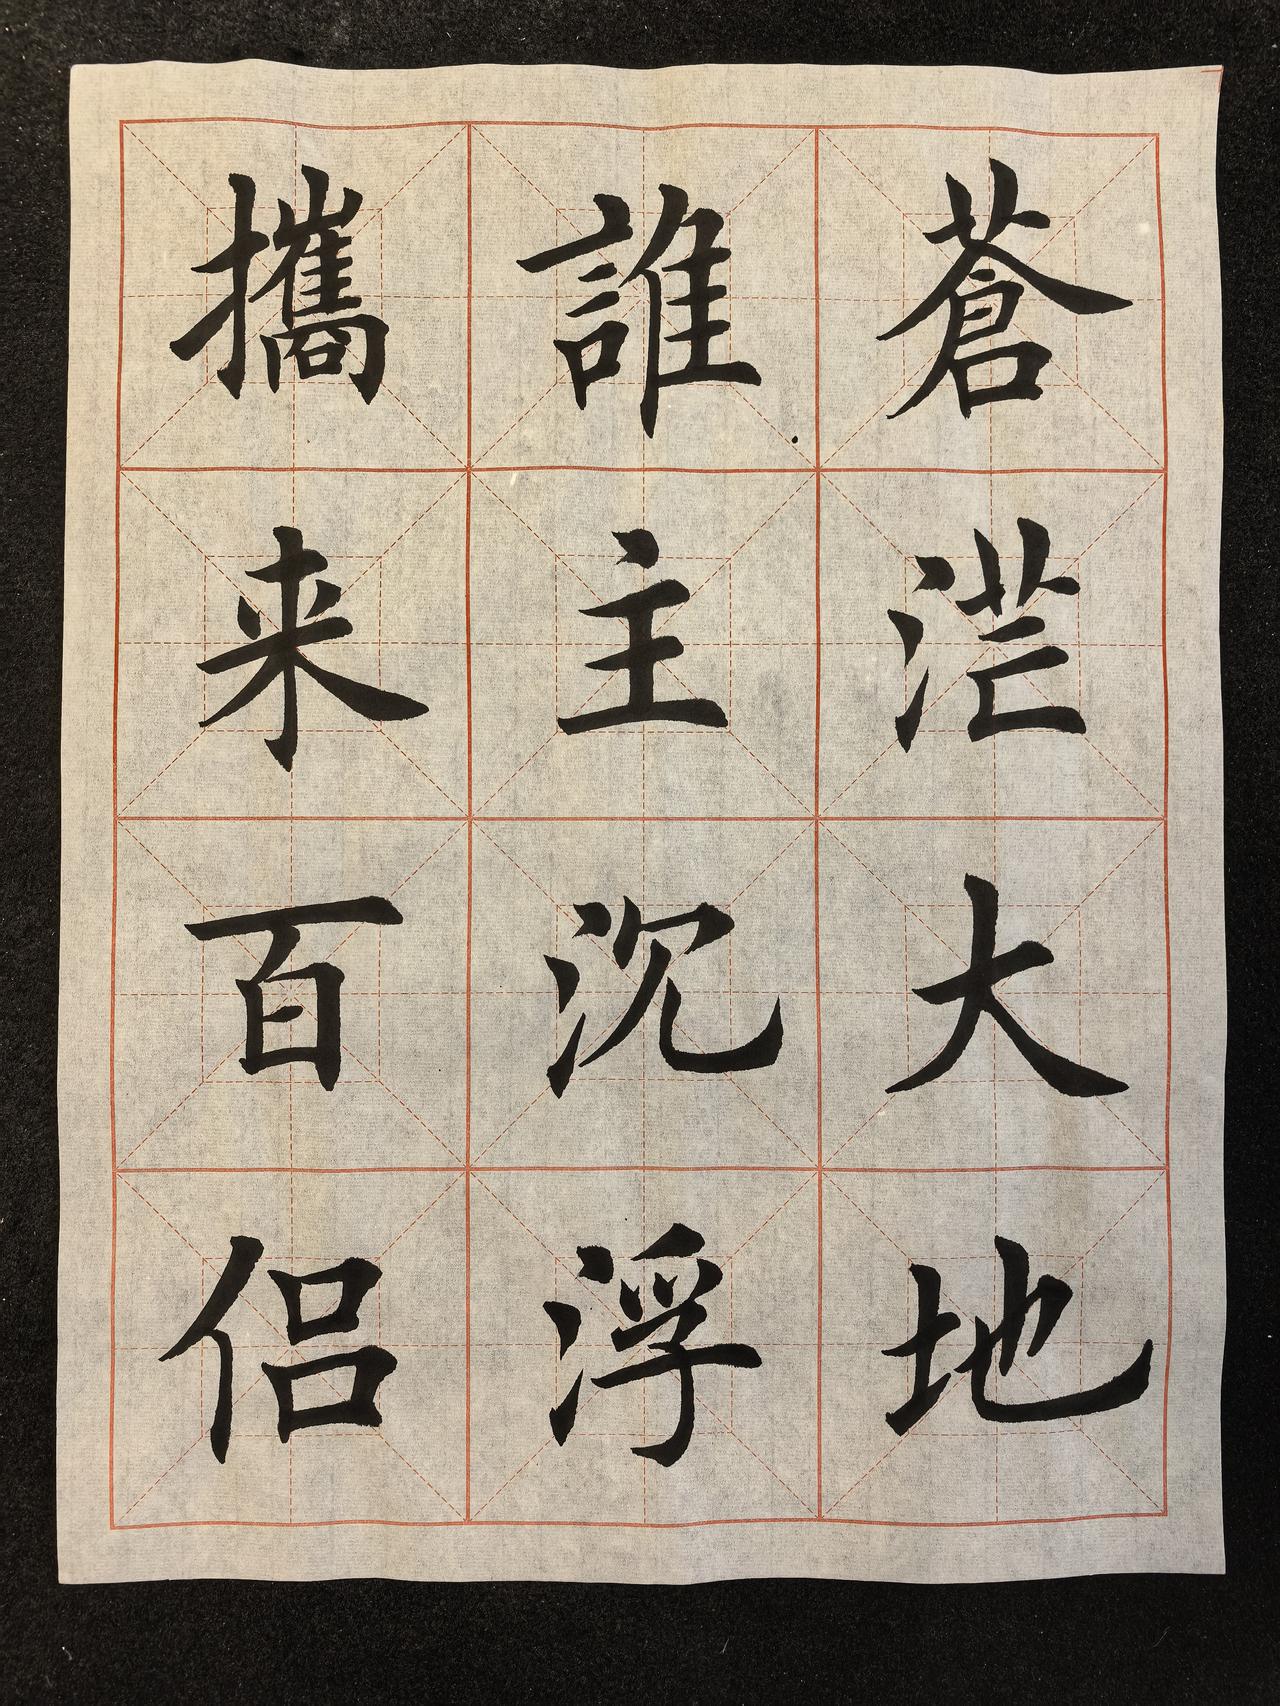 蒼茫大地
誰主沉浮
攜来百侣